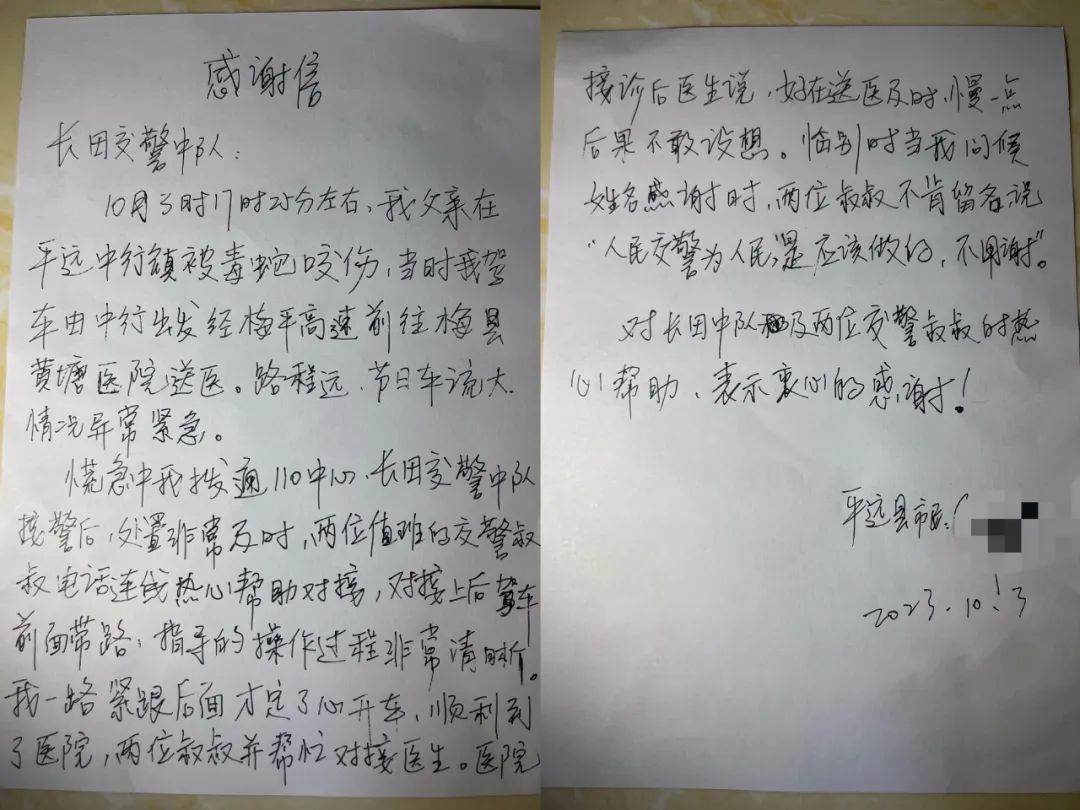 感谢信
长田交警中队:
10月3时17时25分左右,我父亲在
平远中行镇被毒蛇咬伤,当时我驾
车由中行出发经梅平高速前往梅县
黄塘医院送医。路程远、节日车流大
情况异常紧急。
慌急中我拨通110中心、长田交警中队
接警后,处置非常及时,两位值班的交警叔
叔电话连线热心帮助对接,对接上后驾车
前面带路、指导的操作过程非常清晰。
我一路紧跟后面才定了心开车,顺利到
了医院,两位叔叔并帮忙对接医生。医院
接诊后医生说,好在送医及时,慢一点
后果不敢设想。临别时当我问候
姓名感谢时,两位叔叔不肯留名说
“人民交警为人民,是应该做的,不用谢”。
对长田中队及两位交警叔叔的热
心帮助、表示衷心的感谢!
平远县市民:
2023.10.13